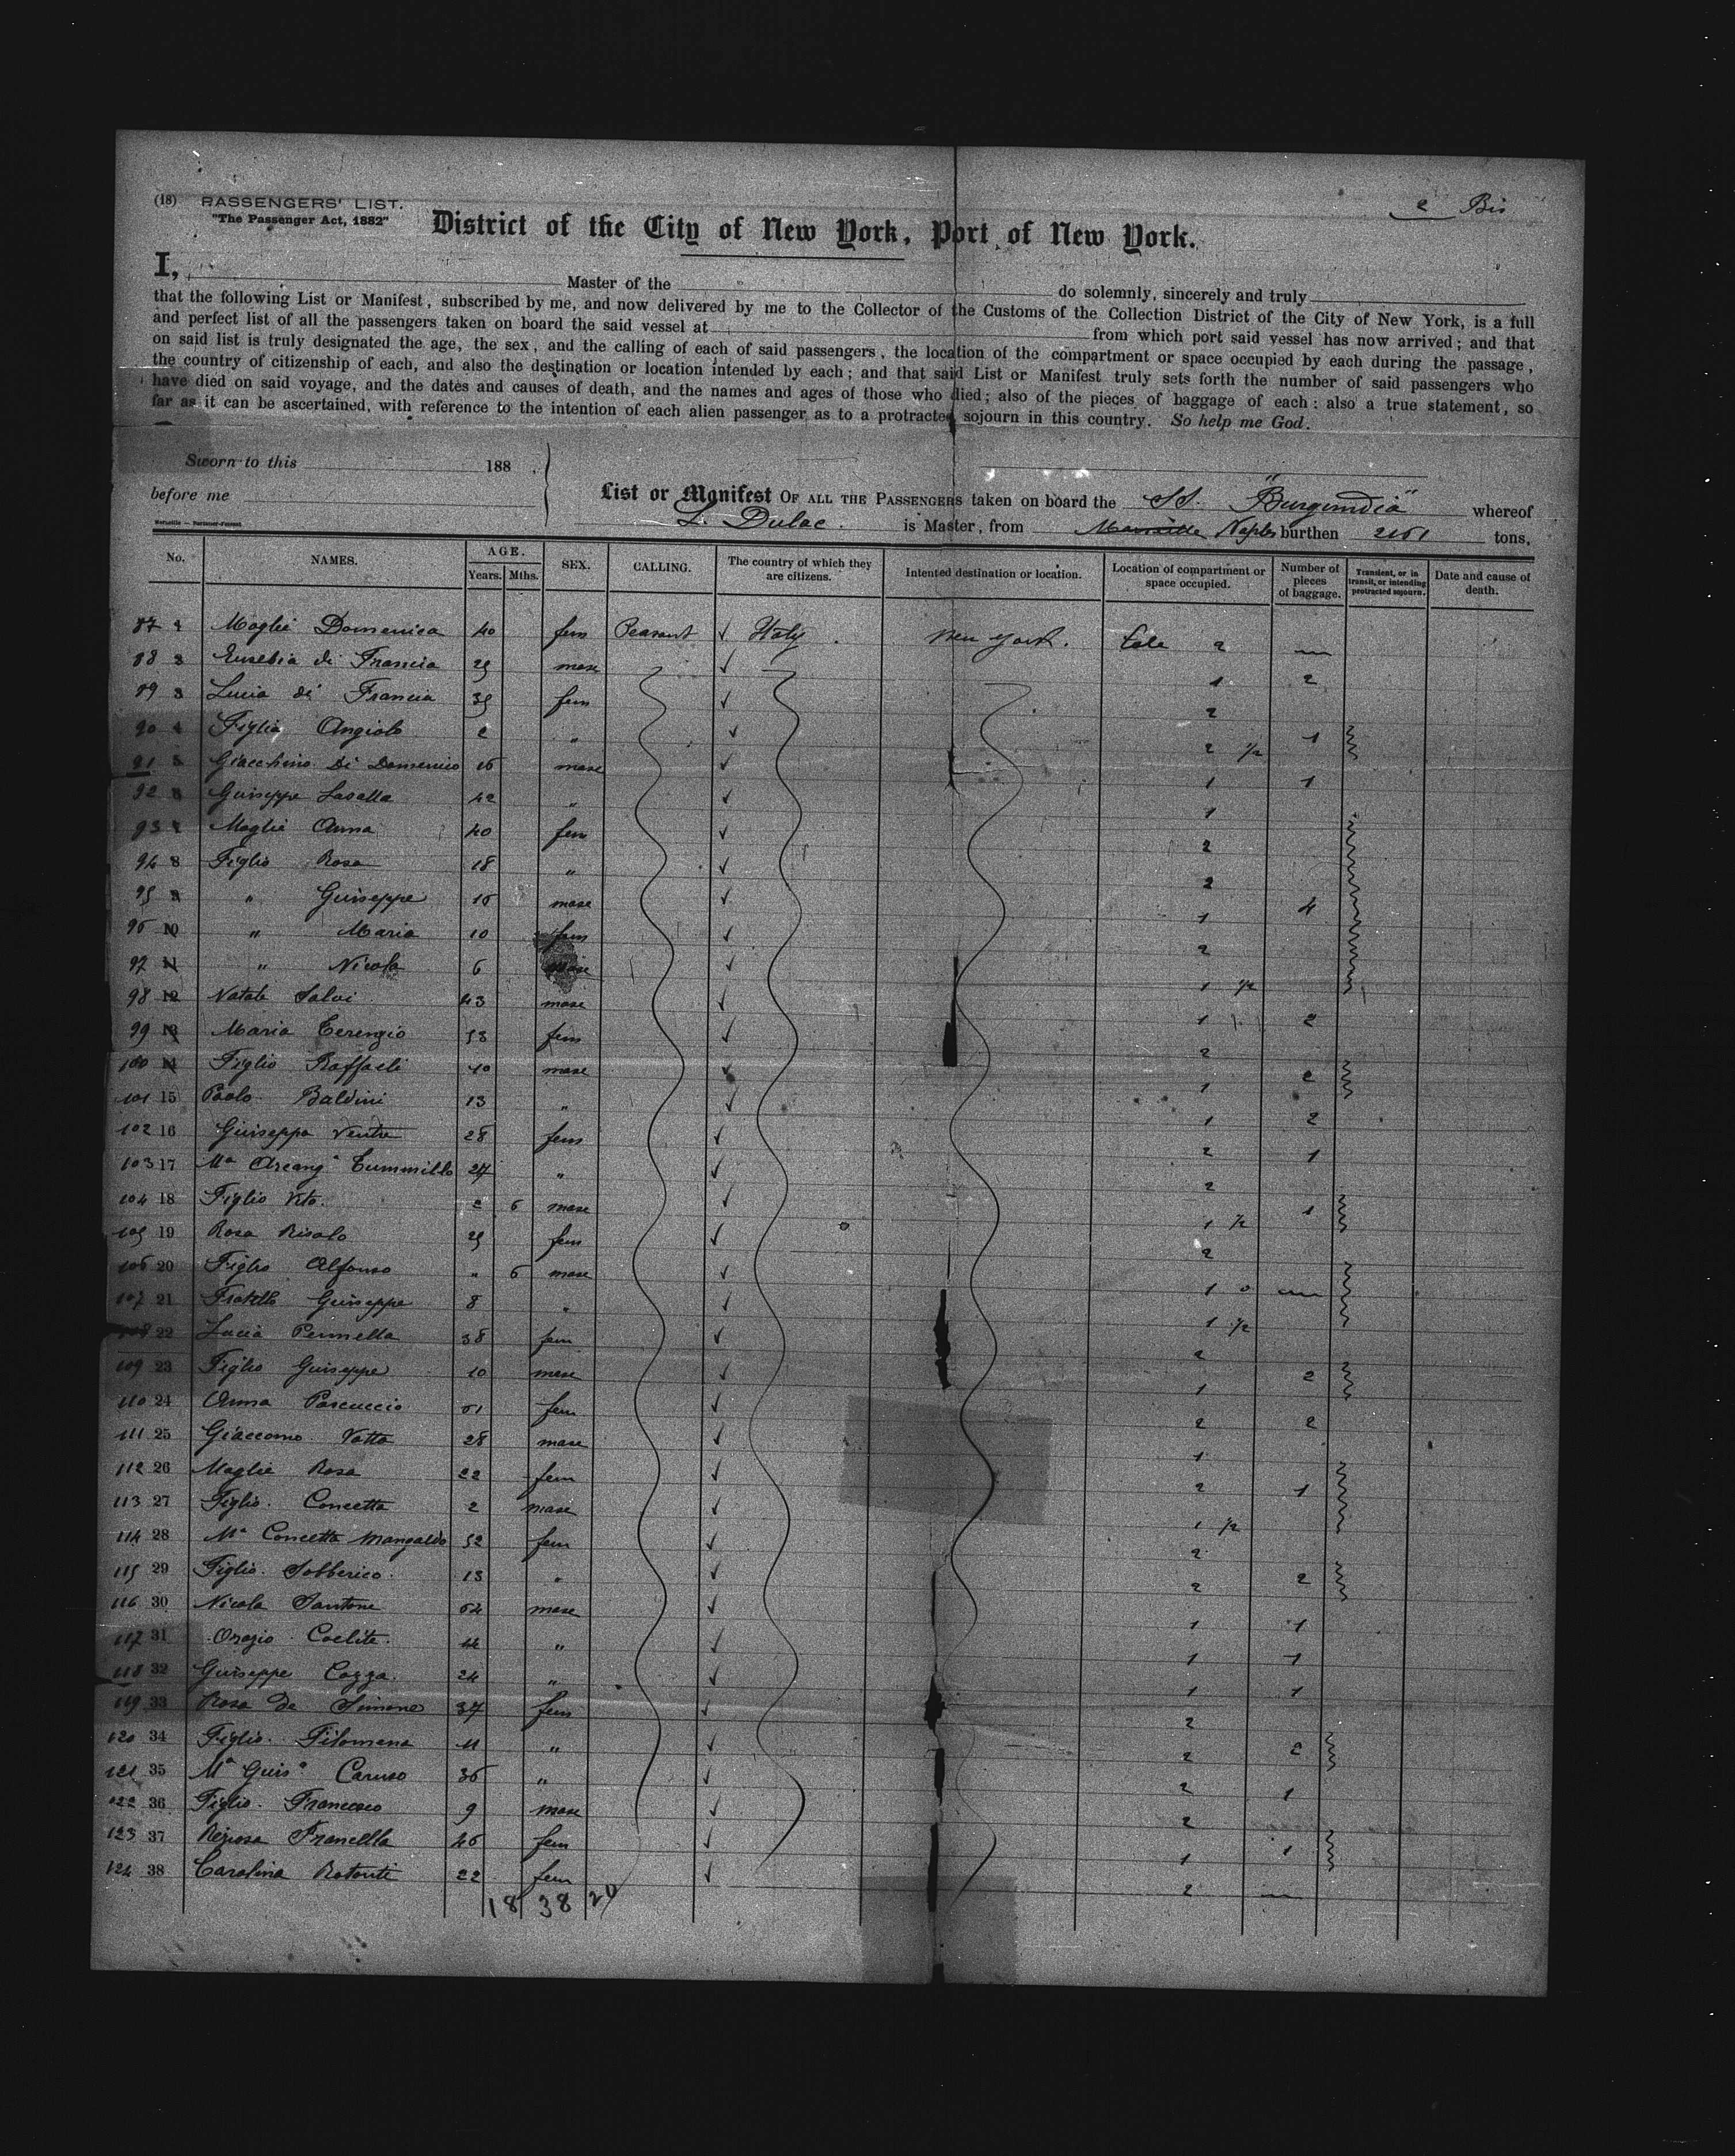 (18) PASSENGERS' LIST.
"The Passenger Act, 1882"
2 Bis
District of the City of New York, Port of New York.
I, Master of the do solemnly, sincerely and truly
that the following List or Manifest, subscribed by me, and now delivered by me to the Collector of the Customs of the Collection District of the City of New York, is a full
and perfect list of all the passengers taken on board the said vessel at from which port said vessel has now arrived; and that
on said list is truly designated the age, the sex, and the calling of each of said passengers, the location of the compartment or space occupied by each during the passage,
the country of citizenship of each, and also the destination or location intended by each; and that said List or Manifest truly sets forth the number of said passengers who
have died on said voyage, and the dates and causes of death, and the names and ages of those who died; also of the pieces of baggage of each: also a true statement, so
far as it can be ascertained, with reference to the intention of each alien passenger as to a protracted sojourn in this country. So help me God.
Sworn to this 188 .
before me
List or Manifest OF ALL THE PASSENGERS taken on board the SS. "Burgundia" whereof
L. Dulac. is Master, from Marseille Naples burthen 2161 tons.
No. NAMES. AGE. Years. Mths. SEX. CALLING. The country of which they are citizens. Intented destination or location. Location of compartment or space occupied. Number of pieces of baggage. Transient, or in transit, or intending protracted sojourn. Date and cause of death.
87 Moglie Domenica 40 fem Peasant ✓ Italy. New York. Cale 2 —
88 Eusebia di Francia 29 masc ✓ 1 2
89 3 Lucia di Francia 39 fem ✓ 2
90 4 Figlia Angiolo 2 „ ✓ 2 1/2 1
91 5 Giacchino Di Domenico 16 masc ✓ 1 1
92 Giuseppe Lasalla 42 „ ✓ 1
93 Moglie Anna 40 fem ✓ 2
94 8 Figlio Rosa 18 „ ✓ 2
95 9 „ Giuseppe 16 masc ✓ 1 4
96 10 „ Maria 10 fem ✓ 2
97 11 „ Nicola 6 masc ✓ 1 1/2
98 12 Natale Salvi 43 masc ✓ 1 2
99 13 Maria Terenzio 38 fem ✓ 2
100 14 Figlio Raffaele 10 masc ✓ 1 2
101 15 Paolo Baldini 13 „ ✓ 1 2
102 16 Giuseppa Ventre 28 fem ✓ 2 1
103 17 Ma Arcanga Tummillo 27 „ ✓ 2
104 18 Figlio Vito. 2 6 masc ✓ 1 1/2 1
105 19 Rosa Risolo 29 fem ✓ 2
106 20 Figlio Alfonso „ 6 masc ✓ 1 0 —
107 21 Fratello Giuseppe 8 „ ✓ 1 1/2
108 22 Lucia Pennella 38 fem ✓ 2
109 23 Figlio Giuseppe 10 masc ✓ 1 2
110 24 Anna Pascuccio 61 fem ✓ 2 2
111 25 Giaccomo Votta 28 masc ✓ 1
112 26 Moglie Rosa 22 fem ✓ 2 1
113 27 Figlio. Concetta 2 masc ✓ 1 1/2
114 28 Ma Concetta Mangaldo 52 fem ✓ 2
115 29 Figlio. 13 „ ✓ 2 2
116 30 Nicola Santone 64 masc ✓ 1 1
117 31 Orazio Coelite. „ ✓ 1 1
118 32 Giuseppe Cozza. 24 „ ✓ 1 1
119 33 Rosa De Simone 37 fem ✓ 2
120 34 Figlio. Filomena 11 „ ✓ 2 2
121 35 Ma Guisa Caruso 36 „ ✓ 2 1
122 36 Figlio. Francesco 9 masc ✓ 2
123 37 Francella 46 fem ✓ 1 1
124 38 Carolina Rotonti 22 fem ✓ 2 —
18 38 20